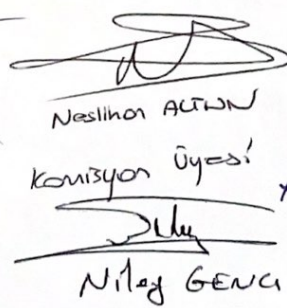 Neslihan ALTUN
Komisyon Üyesi
Nilay GENÇ